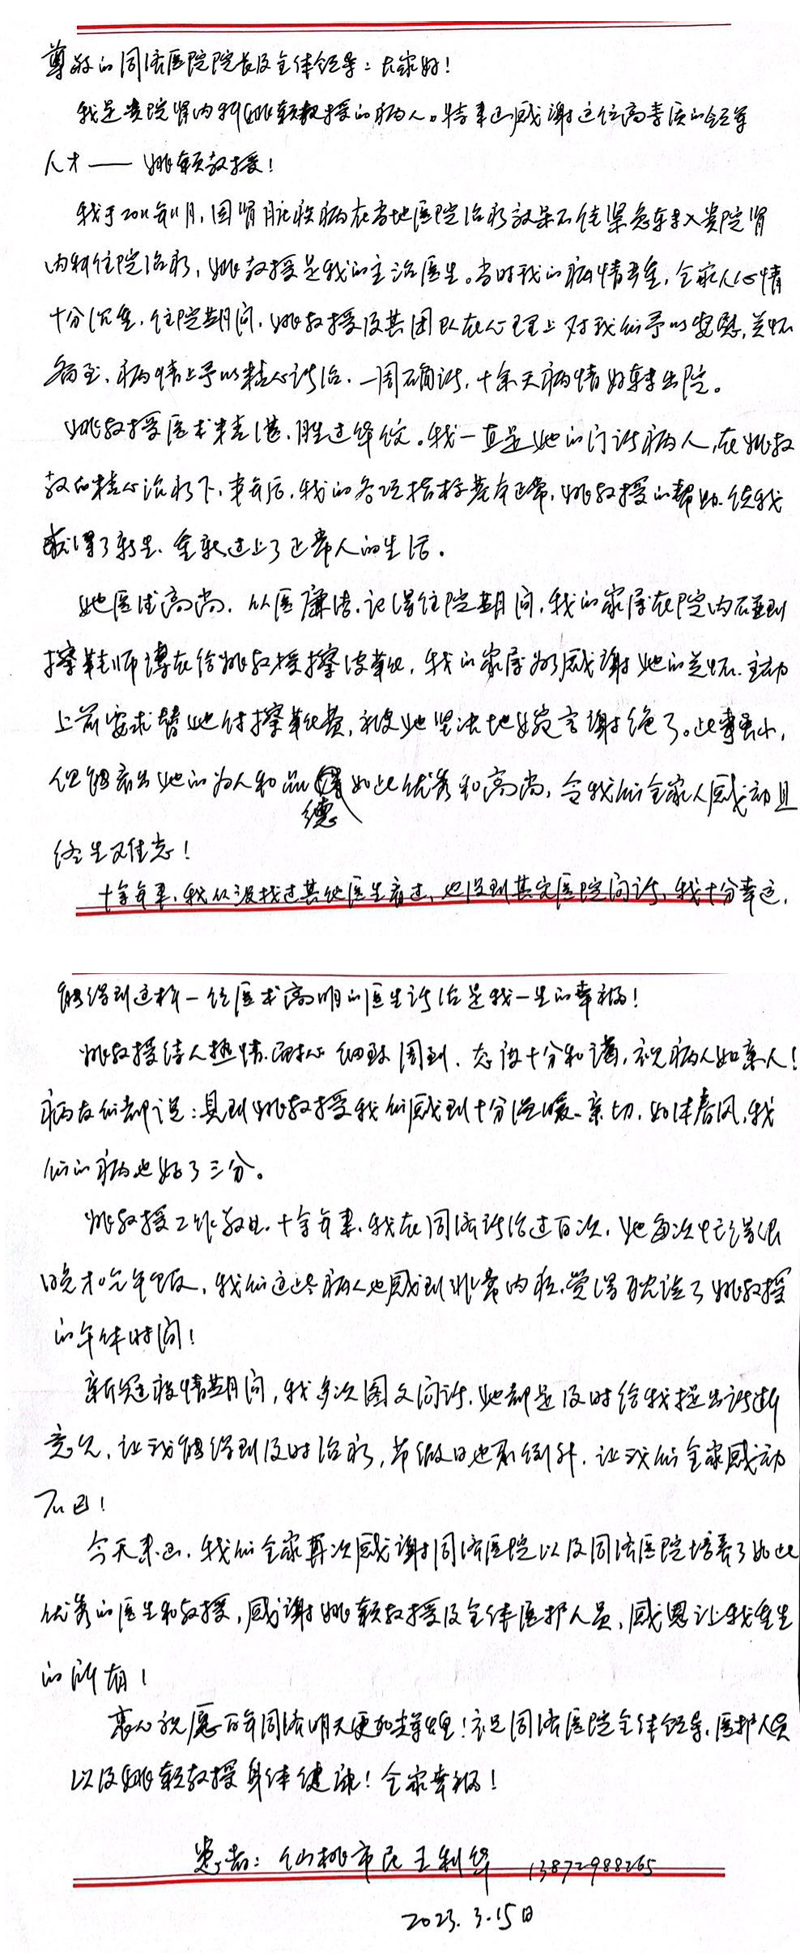 尊敬的同济医院院长及全体领导：大家好！
我是贵院肾内科姚颖教授的病人。特来函感谢这位高素质的领导
人才——姚颖教授！
我于2011年11月，因肾脏疾病在当地医院治疗效果不佳紧急转入贵院肾
内科住院治疗，姚教授是我的主治医生。当时我的病情严重，全家人心情
十分沉重，住院期间，姚教授及其团队在心理上对我们予以安慰，关怀
备至，病情上予以精心诊治，一周确诊，十余天病情好转出院。
姚教授医术精湛，胜过华佗。我一直是她的门诊病人，在姚教
教的精心治疗下，来年后，我的各项指标基本正常，姚教授的帮助，使我
获得了新生，重新过上了正常人的生活。
她医德高尚，从医廉洁，记得住院期间，我的家属在院内碰到
擦鞋师傅在给姚教授擦皮鞋，我的家属为了感谢她的关怀，主动
上前要求替她付擦鞋费，却被她坚决地婉言谢绝了。此事虽小，
但能看出她的为人和品德如此优秀和高尚，令我们全家人感动且
终生难忘！
十余年来，我从没找过其他医生看过，也没到其它医院问诊，我十分幸运，
能得到这样一位医术高明的医生诊治是我一生的幸福！
姚教授待人热情、耐心细致周到，态度十分和谐，视病人如亲人！
病友们都说：见到姚教授我们感到十分温暖、亲切，如沐春风，我
们的病也好了三分。
姚教授工作敬业，十余年来，我在同济诊治过百次，她每次忙得很
晚才吃午饭，我们这些病人也感到非常内疚，觉得耽误了姚教授
的午休时间！
新冠疫情期间，我多次图文问诊，她都是及时给我提出诊断
意见，让我能得到及时治疗，节假日也不例外，让我们全家感动
不已！
今天来函，我们全家再次感谢同济医院以及同济医院培养了如此
优秀的医生和教授，感谢姚颖教授及全体医护人员，感恩让我重生
的所有！
衷心祝愿百年同济明天更加辉煌！祝同济医院全体领导，医护人员
以及姚颖教授身体健康！全家幸福！
患者：仙桃市民王利华 13872988265
2023.3.15日